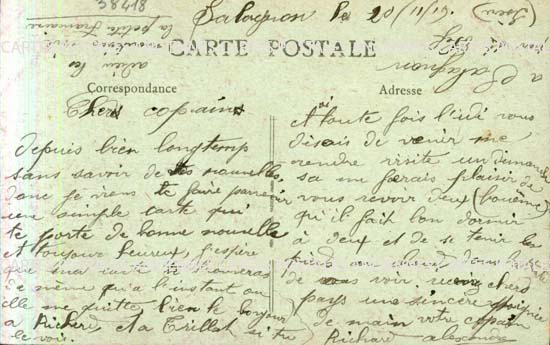 38418
Salagnon le 20/11/16
(Isère)
CARTE POSTALE
Correspondance
Adresse
Chers copains
depuis bien longtemp
sans savoir de tes nouvelles
donc je viens te faire parvenir
une simple carte qui
te porte de bonne nouvelle
et toujour heureux, j'espère
que ma carte
de même qu'a l'instant ou
elle me quitte bien le bonjour
a Richerd et a Trillat si tu
le vois.
et toute fois l'idé vous
disais de venir me
rendre visite un dimanche
sa me ferais plaisir de
vous revoir deux (bohème)
qu'il fait bon dormir
à deux et de se tenir les
pieds au chaud dans
de vous voir cher
pays une sincère poignée
de main votre copain
Richard alexandre
a Salagnon